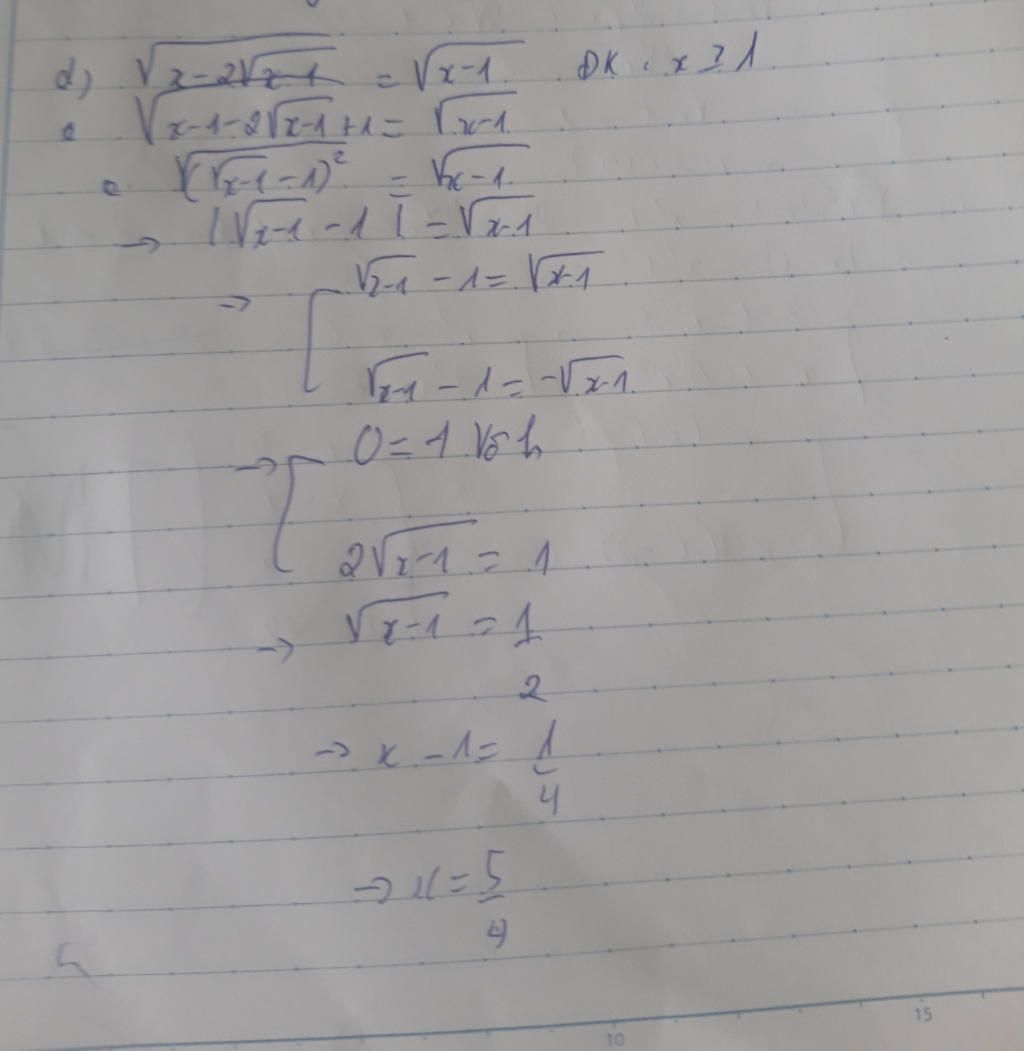 d) √(x-2√(x-1)) = √(x-1) ĐK: x ≥ 1
√(x-1-2√(x-1)+1) = √(x-1)
√((√(x-1)-1)²) = √(x-1)
→ |√(x-1) - 1| = √(x-1)
→ [ √(x-1) - 1 = √(x-1)
√(x-1) - 1 = -√(x-1)
→ [ 0 = 1 Vô
2√(x-1) = 1
→ √(x-1) = 1/2
→ x - 1 = 1/4
→ x = 5/4
10 15